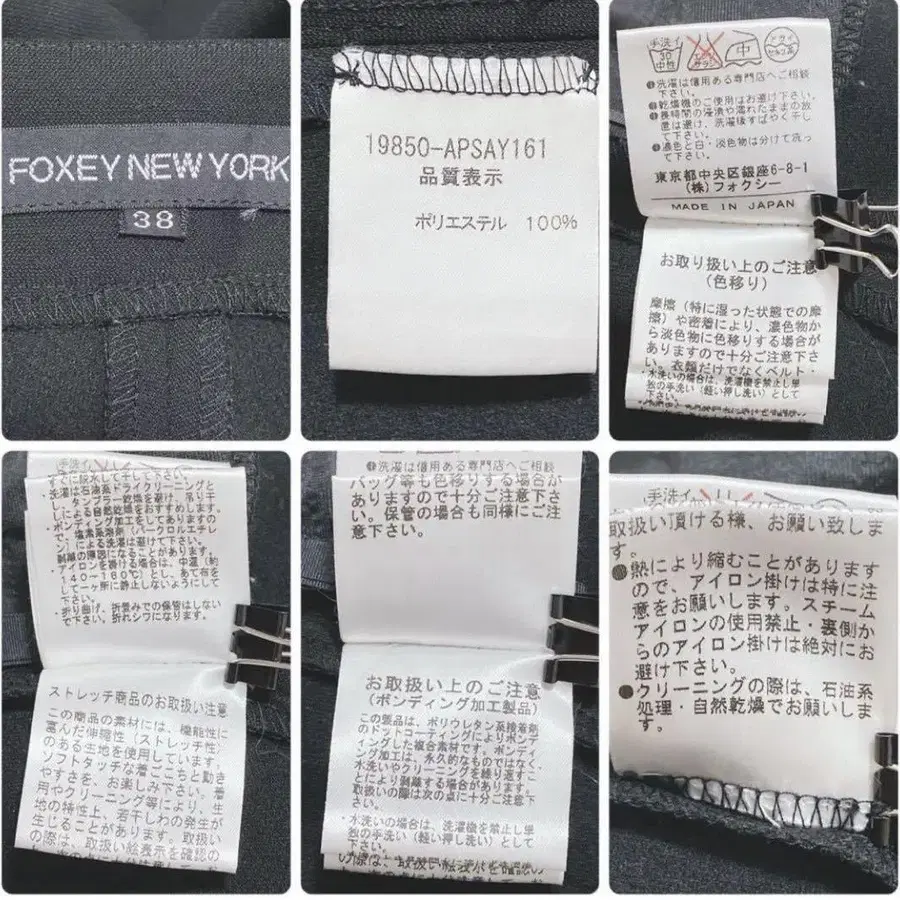 FOXEY NEW YORK
38
19850-APSAY161
品質表示
ポリエステル 100%
手洗イ
30
中性
中
ドライ
セキユ系
❶洗濯は信用ある専門店へご相談
下さい。
❷乾燥機のご使用はお避け下さい。
❸長時間の浸漬や濡れたままの放
置は避け、洗濯後すばやく干し
て下さい。
❹濃色と白・淡色物は分けて洗っ
て下さい。
東京都中央区銀座6-8-1
(株)フォクシー
MADE IN JAPAN
お取り扱い上のご注意
(色移り)
摩擦（特に湿った状態での摩
擦）や密着により、濃色物か
ら淡色物に色移りする場合が
ありますので十分ご注意下さ
い。衣類だけでなくベルト・
・水洗いの場合は、洗濯機を禁止し単
独の手洗い（軽い押し洗い）として
下さい。
手洗イ
140~160℃）とし、あて布を
して一ヶ所に静止しないようにして
下さい。
・折り曲げ、折畳みでの保管はしない
で下さい。折れシワになります。
ストレッチ商品のお取扱い注意
この商品の素材には、機能性に
富んだ伸縮性（ストレッチ性）
のある生地を使用しています。
ソフトタッチな着ごこちと動き
やすさを、お楽しみ下さい。着
用やクリーニング等により、生
地の特性上、若干しわの発生が
生じることがあります。取扱い
の際は、取扱い絵表示を確認の
❶洗濯は信用ある専門店へご相談
バッグ等も色移りする場合が
ありますので十分ご注意下さ
い。保管の場合も同様にご注
意下さい。
お取扱い上のご注意
(ボンディング加工製品)
この製品は、ポリウレタン系接着剤
のドットコーティングによりボンデ
ィングした複合素材です。ボンディ
ング加工は、永久的なものではなく、
水洗いやクリーニングを繰り返すこ
とにより剥離する場合があります。
取扱いの際は次の点に十分ご注意下
さい。
・水洗いの場合は、洗濯機を禁止し単
独の手洗い（軽い押し洗い）として
下さい。
の際は、取扱い絵表示を確認の
手洗イ
取扱い頂ける様、お願い致しま
す。
●熱により縮むことがあります
ので、アイロン掛けは特に注
意をお願いします。スチーム
アイロンの使用禁止・裏側か
らのアイロン掛けは絶対にお
避け下さい。
●クリーニングの際は、石油系
処理・自然乾燥でお願いしま
す。